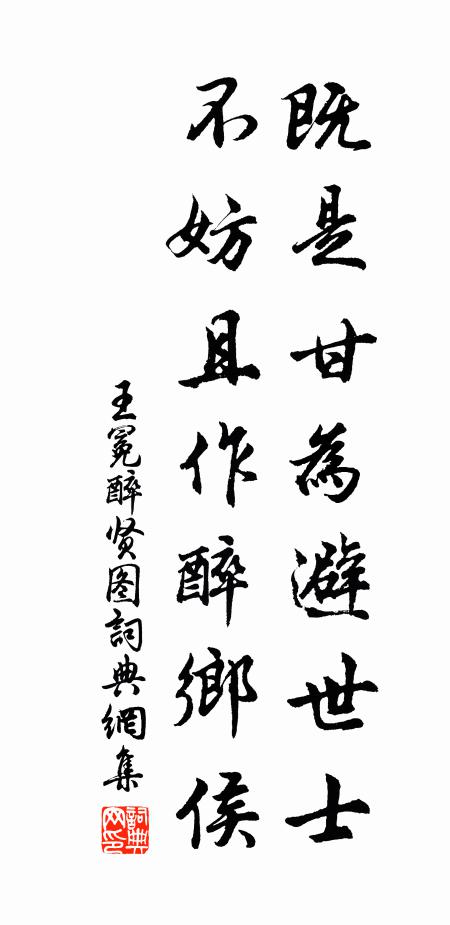 既是甘為避世士
不妨且作醉鄉侯
王冕醉贤图詞典網集
詞典网印